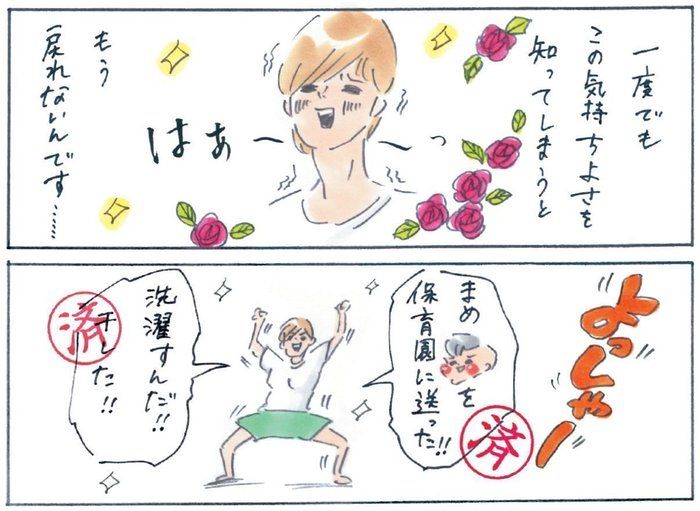 一度でも
この気持ちよさを
知ってしまうと
はぁ〜〜っ
もう
戻れないんです……
よっしゃー
まめを
保育園に送った!!
済
洗濯すんだ!!
干した!!
済